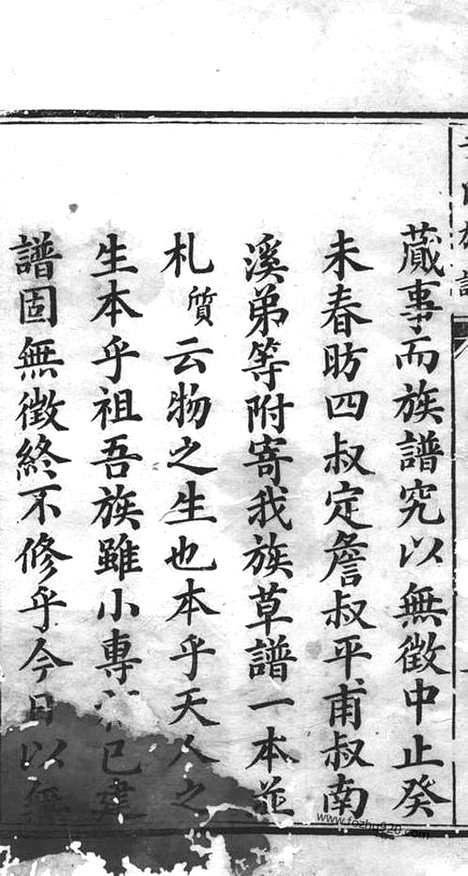 蕆事而族譜究以無徵中止癸
未春昉四叔定詹叔平甫叔南
溪弟等附寄我族草譜一本並
札質云物之生也本乎天人之
生本乎祖吾族雖小專已建
譜固無徵終不修乎今日以無
www.fozhu920.com